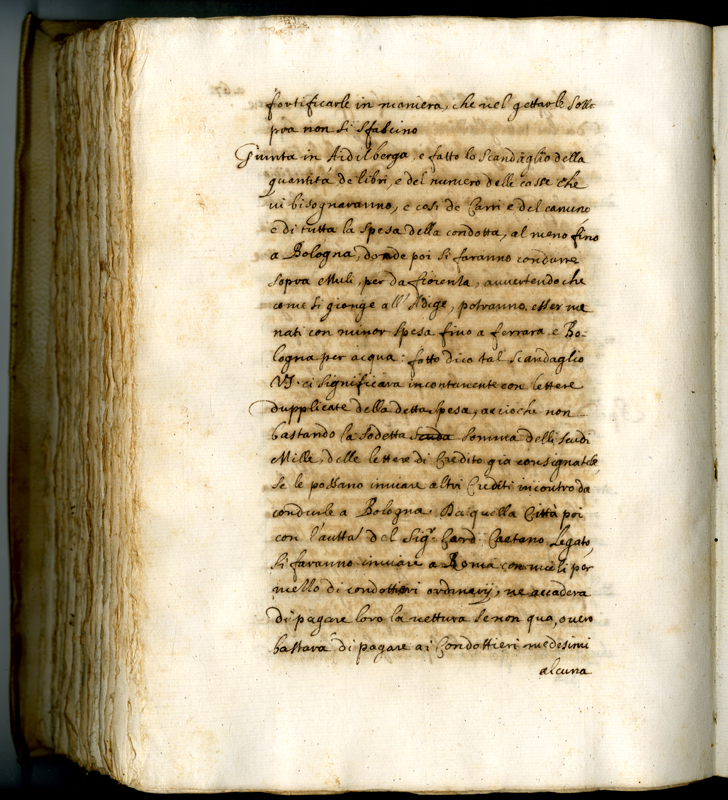 fortificarle in maniera, che nel gettarle sotto
pra non si sfascino
Giunta in Aidilberga, e fatto lo Scandaglio della
quantità de libri, e del numero delle casse che
vi bisognaranno, e così de Carri e del camino
e di tutta la spesa della condotta, al meno fino
a Bologna, donde poi si faranno condurre
sopra Muli, per da fiorenza, avvertendo che
come si gionge all'Adige, potranno esser me
nati con minor spesa fino a ferrara e Bo-
logna per acqua: fatto dico tal scandaglio
VS. ci significarà incontanente con lettere
dupplicate della detta spesa, acciochè non
bastando la sodetta scuda somma delli scudi
Mille, delle lettere di Credito già consignatele,
se le possano inviare altri Crediti incontro da
condurle a Bologna. Da quella Città poi
con l'autta del Sigr. Card. Caetano Legato,
si faranno inviare a Roma con muli per
mello di condottieri ordinarij, ne accaderà
di pagare loro la vettura se non qua, overo
bastarà di pagare ai Condottieri medesimi
alcuna